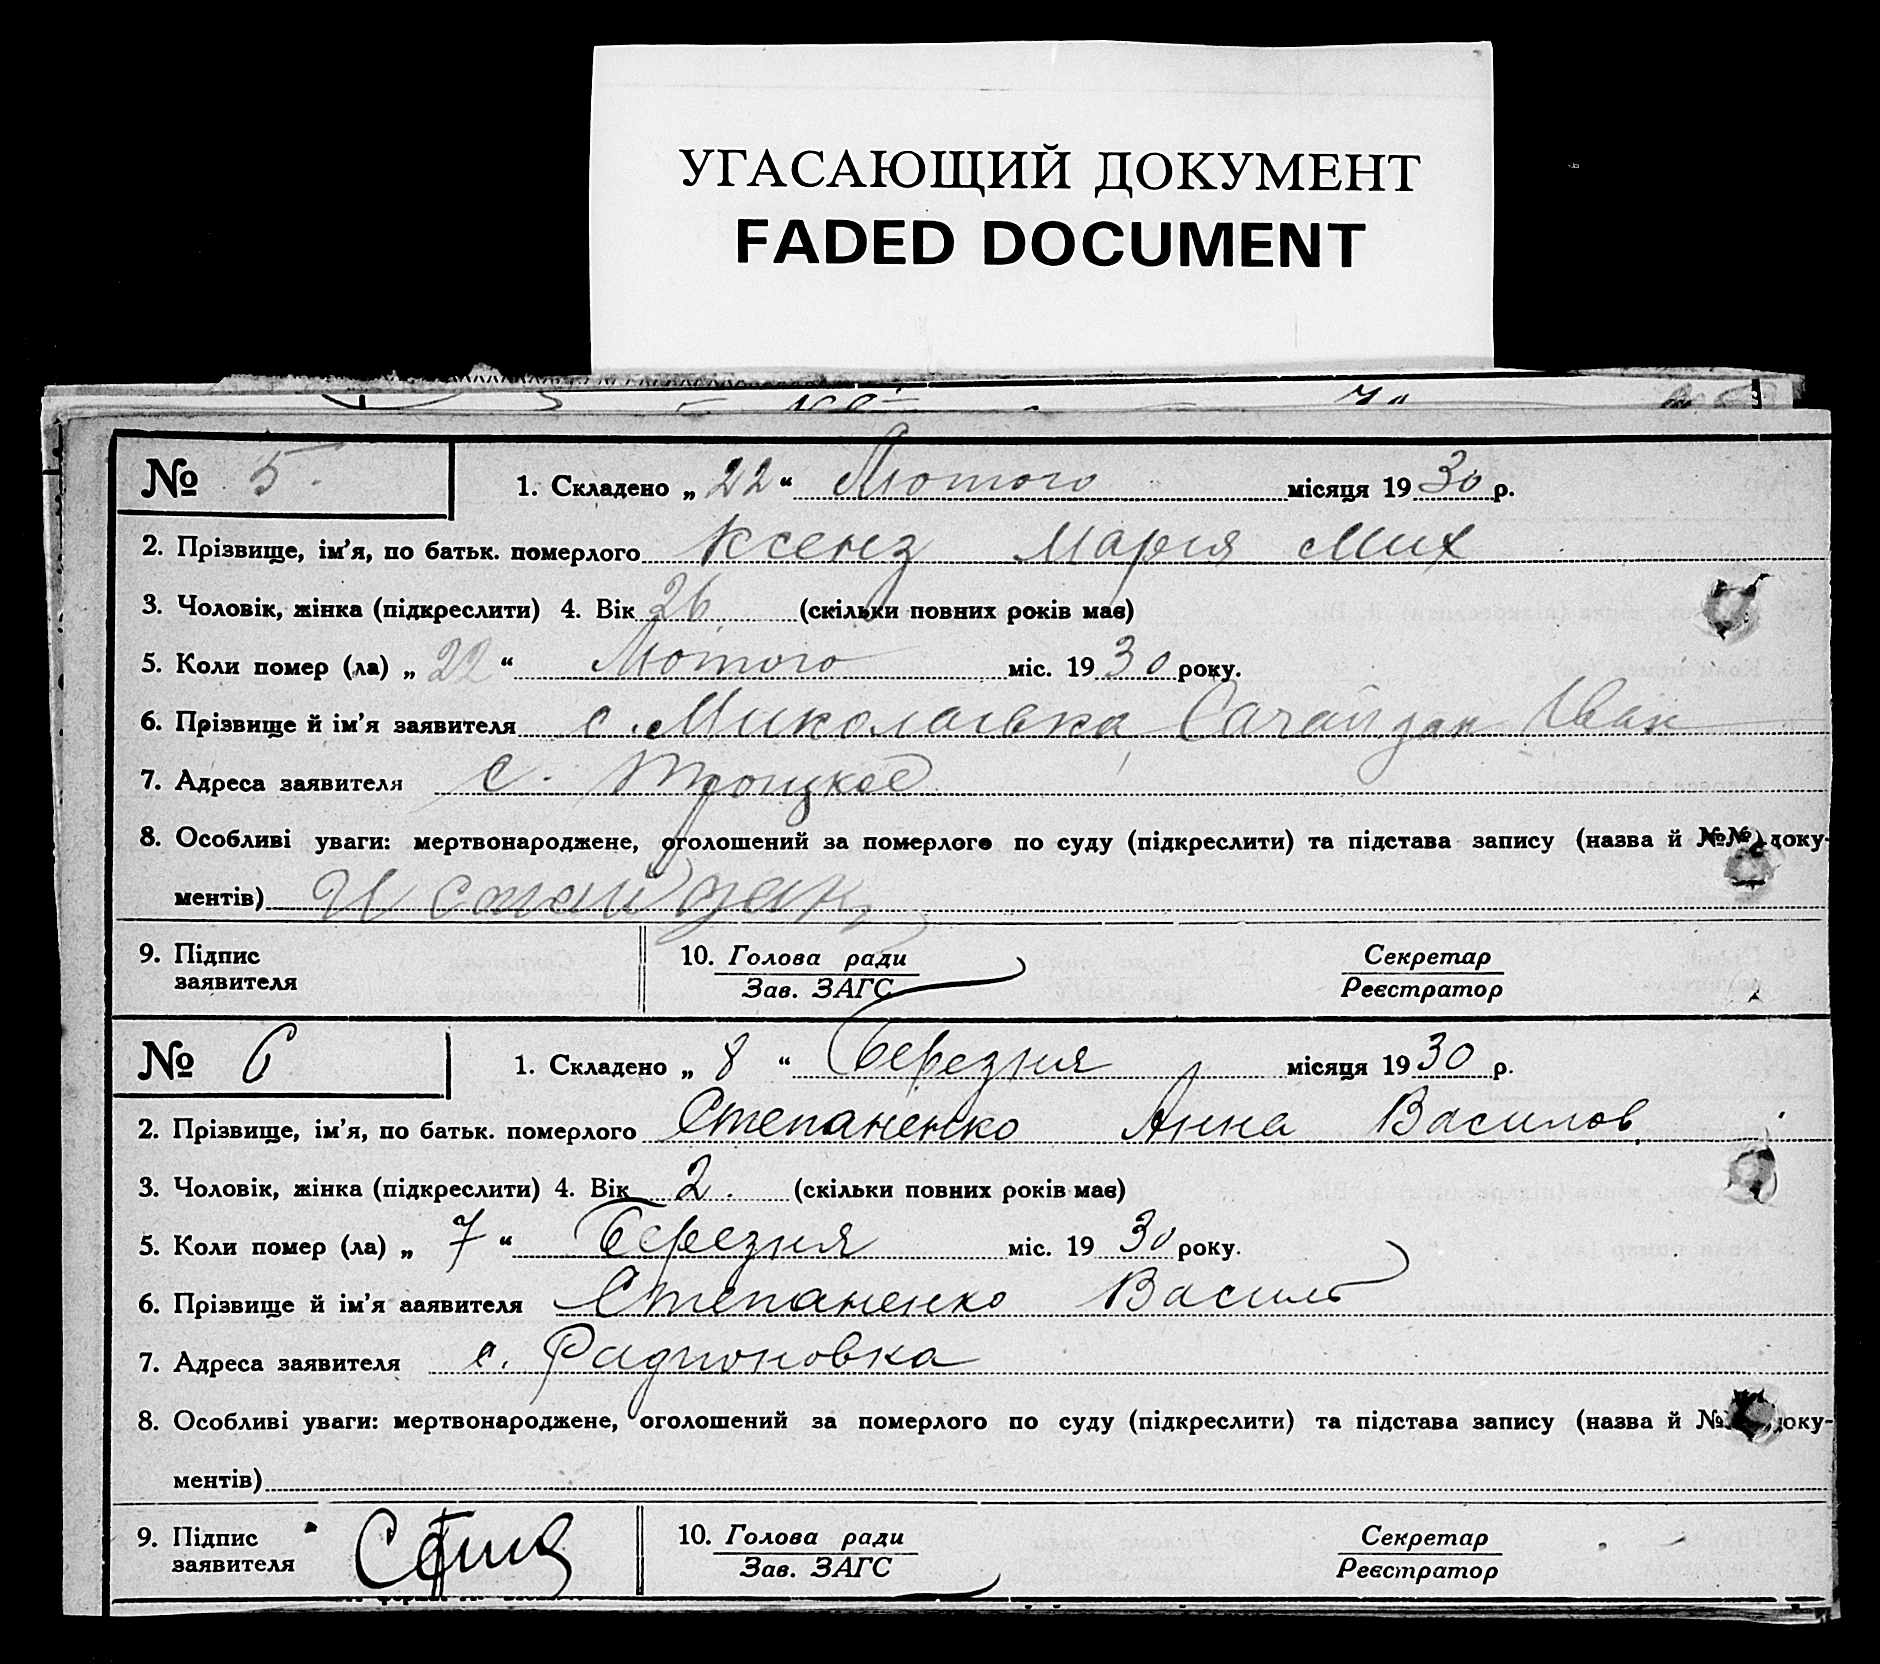 УГАСАЮЩИЙ ДОКУМЕНТ
FADED DOCUMENT
№ 5. 1. Складено „ 22 “ Лютого місяця 1930 р.
2. Прізвище, ім'я, по батьк. померлого Ксенз Марія Мих
3. Чоловік, жінка (підкреслити) 4. Вік 26 (скільки повних років має)
5. Коли помер (ла) „ 22 “ Лютого міс. 1930 року.
6. Прізвище й ім'я заявителя с. Миколаївка Іван
7. Адреса заявителя с. Троцкое
8. Особливі уваги: мертвонароджене, оголошений за померлого по суду (підкреслити) та підстава запису (назва й №№ доку-
ментів)
9. Підпис заявителя 10. Голова ради Секретар
Зав. ЗАГС Реєстратор
№ 6 1. Складено „ 8 “ Березня місяця 1930 р.
2. Прізвище, ім'я, по батьк. померлого Степаненко Анна Василов.
3. Чоловік, жінка (підкреслити) 4. Вік 2. (скільки повних років має)
5. Коли помер (ла) „ 7 “ Березня міс. 1930 року.
6. Прізвище й ім'я ааявителя Степаненко Василь
7. Адреса заявителя с. Радионовка
8. Особливі уваги: мертвонароджене, оголошений за померлого по суду (підкреслити) та підстава запису (назва й № доку-
ментів)
9. Підпис заявителя 10. Голова ради Секретар
Зав. ЗАГС Реєстратор